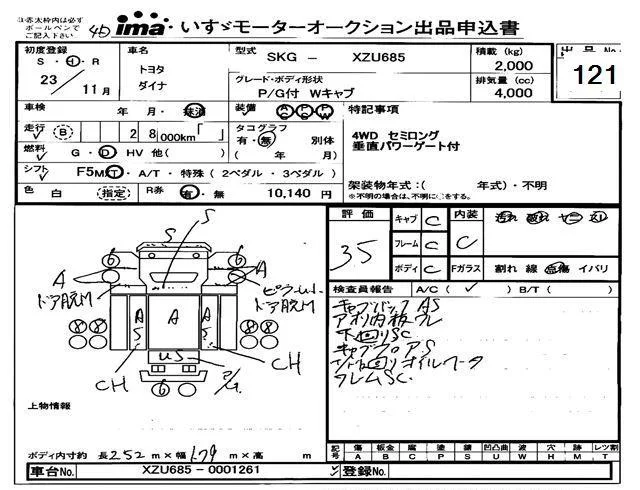 ※赤太枠内は必ず
ボールペンで
ご記入下さい
4D
ima いすゞモーターオークション出品申込書
初度登録
S・H・R
23
11月
車名
トヨタ
ダイナ
型式
SKG - XZU685
グレード・ボディ形状
P/G付 Wキャブ
積載 (kg)
2,000
排気量 (cc)
4,000
出品No
121
車検
年 月・抹消
装備
特記事項
4WD セミロング
垂直パワーゲート付
走行 B 2 8 000km「 」
タコグラフ
有・無 別体
( 年 月)
燃料 G・D HV 他( )
シフト F5 M/T・A/T・特殊(2ペダル・3ペダル)
架装物年式:( 年式)・不明
※不明の場合は、不明に○をする。
色 白 (指定) R券 有・無 10,140 円
評価
35
キャブ C
フレーム C
ボディ C
内装
C
汚れ 破れ
Fガラス 割れ 線 点傷 イバリ
検査員報告 A/C( ✓ ) B/T( )
キャブバック AS
アオリ内板ワレ
下回りSC
キャブフロアS
フレムSC.
S
S
6
6
A
A
ドア
ドア
8 8
8 8
A
A
A
S
S
US
CH
CH
6
上物情報
ボディ内寸約 長252 m×幅179 m×高 m
記号
傷 板金 腐 塗 錆 凹凸曲 波 穴 跡 レツ割
A B C P S U W H M T
車台No. XZU685-0001261
登録No.